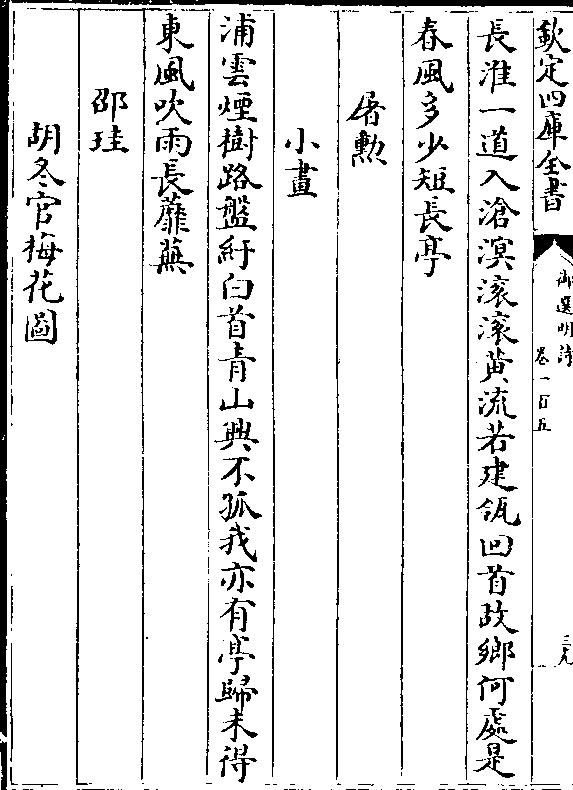 欽定四庫全書
御選明詩
卷一百五
三九
長淮一道入滄溟滚滚黄流若建瓴回首故鄉何處是
春風多少短長亭
屠勲
小畫
浦雲煙樹路盤紆白首青山興不孤我亦有亭歸未得
東風吹雨長蘼蕪
邵珪
胡冬官梅花圖